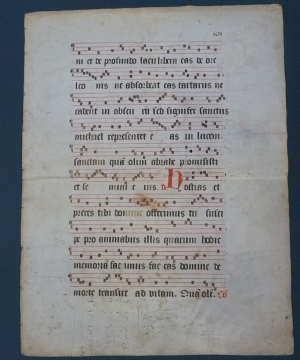 ni et de profundo lacu libera eas de ore
leo nis ne absorbeat eas tartarus ne
cadent in obscu rū sed signifer sanctus
michael representet e as in lucem
sanctam quā olim abrahe promisisti
et se mini e ius. Hostias et
preces tibi domine offerimus tu susci
pe pro animabus illis quarum hodie
memoriā fac imus fac eas domine de
morte transire ad vitam. Quā oli.